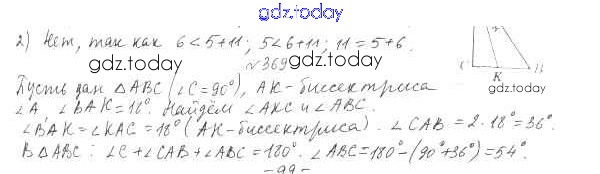 gdz.today
2) Нет, так как 6 < 5 + 11; 5 < 6 + 11; 11 = 5 + 6.
gdz.today
№369
C K B
gdz.today
Пусть дан △ABC (∠C = 90°), AK - биссектриса
∠A, ∠BAK = 18°. Найдём ∠AKC и ∠ABC.
∠BAK = ∠KAC = 18° (AK - биссектриса). ∠CAB = 2 · 18° = 36°.
В △ABC: ∠C + ∠CAB + ∠ABC = 180°. ∠ABC = 180° - (90° + 36°) = 54°.
gdz.today
gdz.today
- 99 -